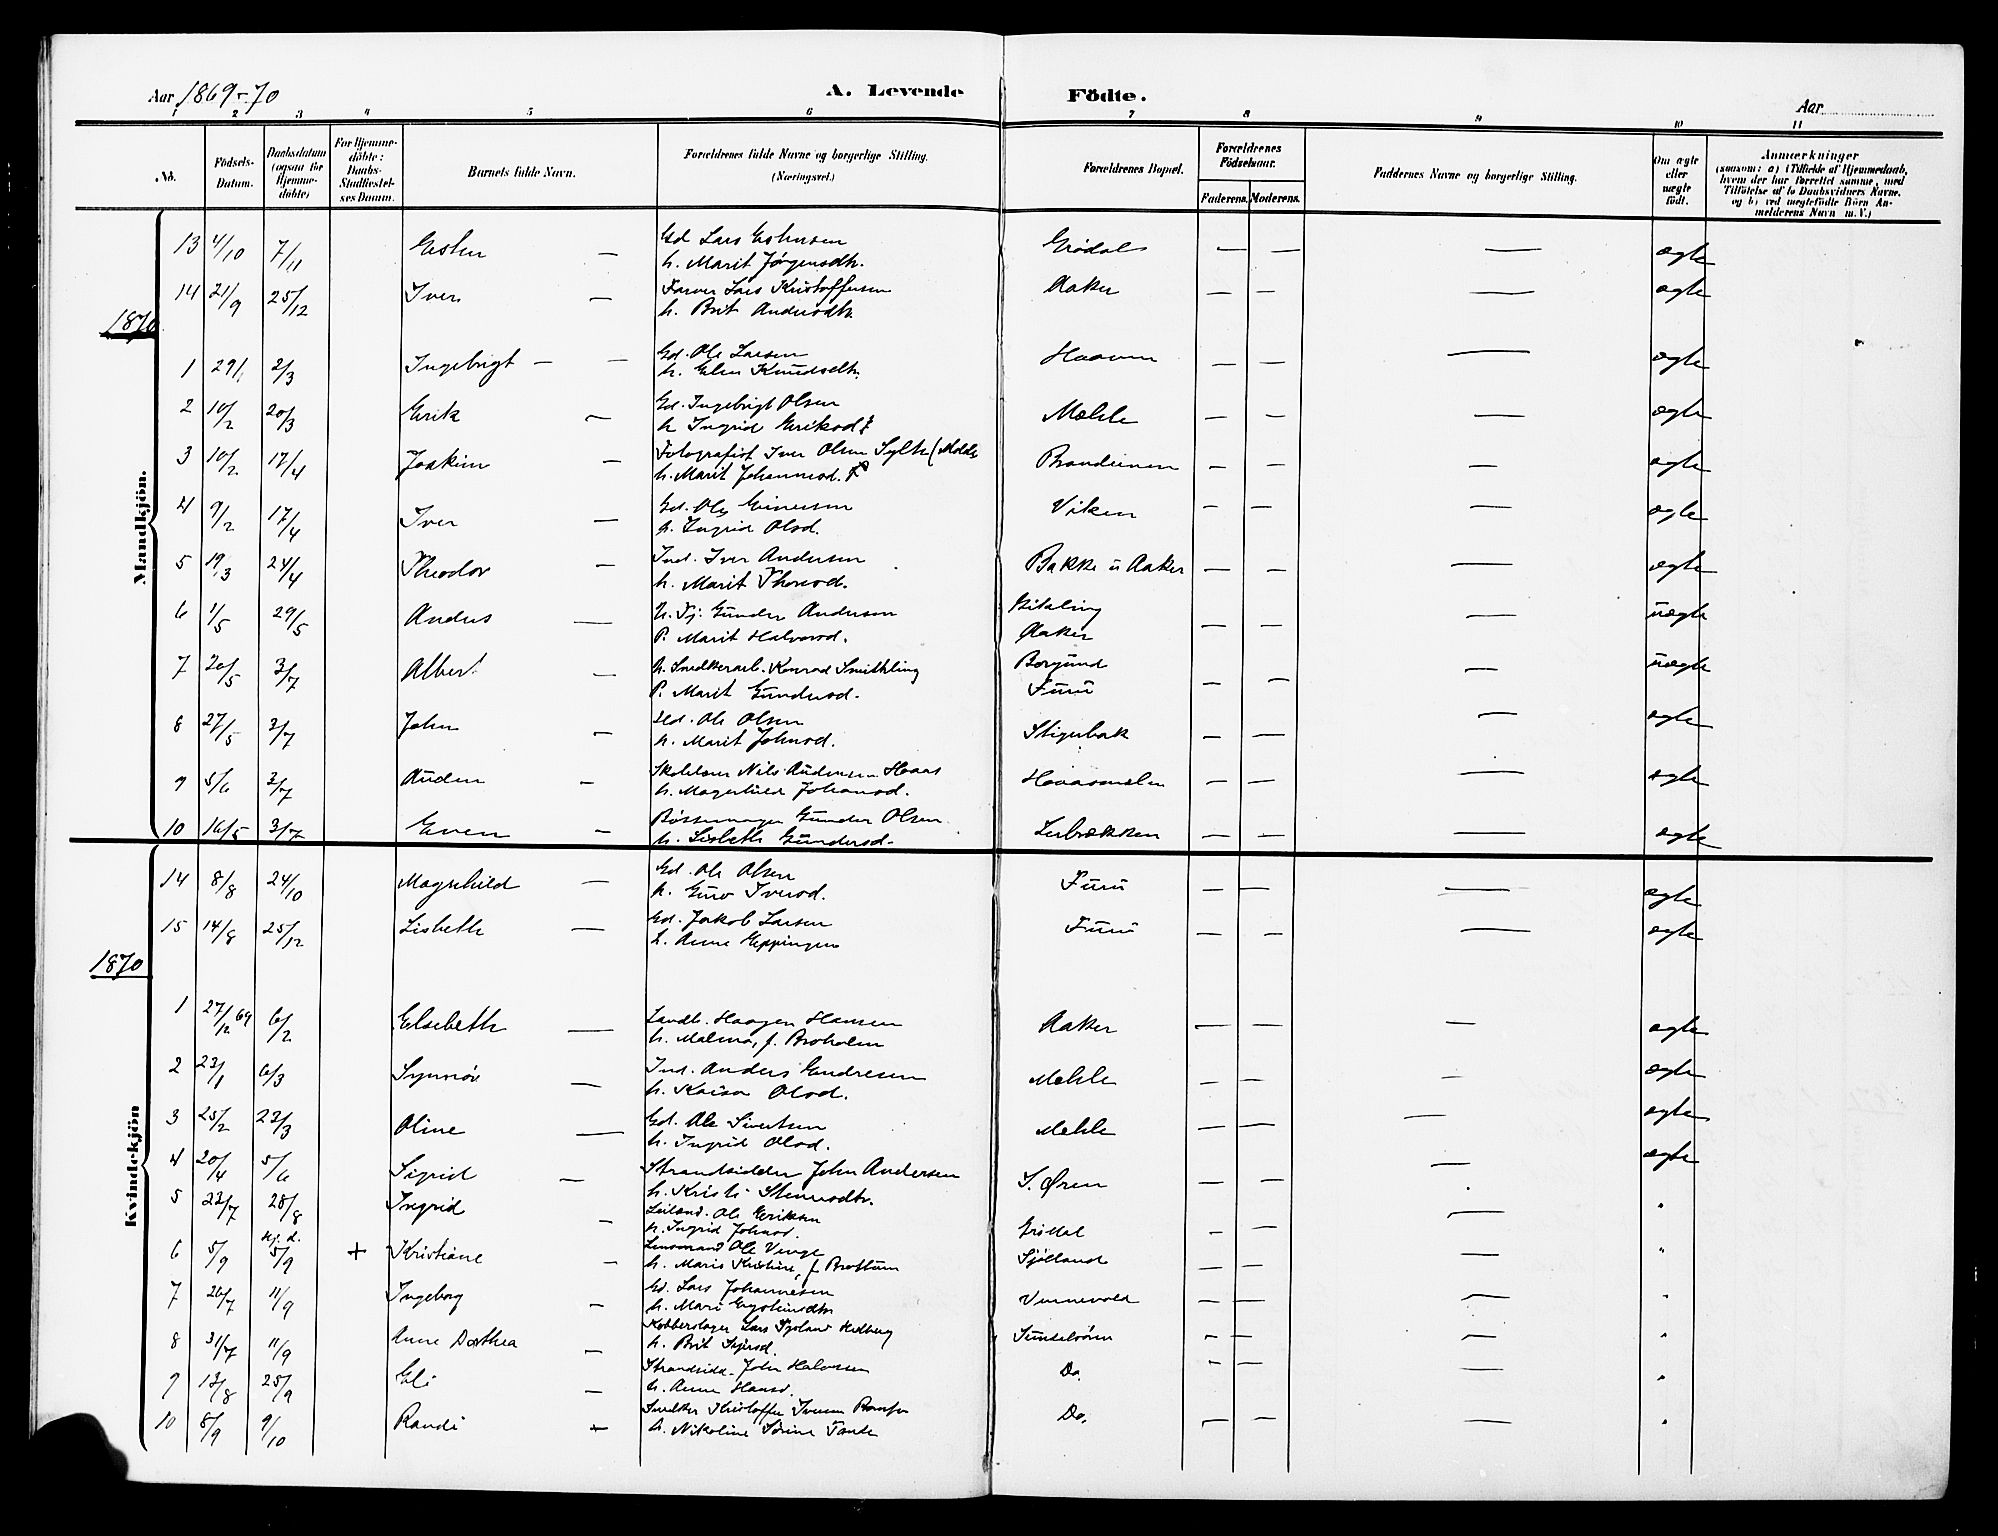 Aar 1869-70
A. Levende Födte.
Aar
1 2 3 4 5 6 7 8 9 10 11
No.
Födsels-Datum.
Daabsdatum (ogsaa for Hjemmedöbte)
For Hjemmedöbte: Daabs-Stadfæstelses Datum.
Barnets fulde Navn.
Forældrenes fulde Navne og borgerlige Stilling. (Næringsvei.)
Forældrenes Bopæl.
Forældrenes Födselsaar.
Faderens. Moderens.
Faddernes Navne og borgerlige Stilling.
Om ægte eller uægte födt.
Anmærkninger
(saasom: a) i Tilfælde af Hjemmedaab, hvem der har forrettet samme, med Tilföielse af to Daabsvidners Navne, og b) ved uægtefödte Börn Anmelderens Navn m. V.)
Mandkjön.
13 4/10 7/11 Esten — Gd Lars Estensen Grödal — — — ægte
h. Marit Jörgensdtr.
14 21/9 25/12 Iver — Farver Lars Kristoffersen Aaker — — — ægte
h. Brit Andersdtr.
1870
1 29/1 2/3 Ingebrigt — — Gd. Ole Larsen — — — ægte
h. Elen Knudsdtr.
2 10/2 20/3 Erik — Gd. Ingebrigt Olsen Mæhle — — — ægte
h. Ingrid Eriksd.
3 10/2 17/4 Joakim — Fotografist Iver Olsen Sylte (Molde — — — ægte
h. Marit Johannesd.
4 9/2 17/4 Iver — Gd. Ole Einersen Viken — — — ægte
h. Ingrid Olsd.
5 19/3 24/4 Theodor — Ind. Iver Andersen Bakke u Aaker — — — ægte
h. Marit Thoresd.
6 1/5 29/5 Anders — U. Tj. Gunder Andersen — — — uægte
P. Marit Halvorsd. Aaker
7 20/5 3/7 Albert — U. Snedkerarb. Konrad Smithling Borgund — — — uægte
P. Marit Gundersd. Furu
8 27/5 3/7 John — Gd. Ole Olsen Stigerbak — — — ægte
h. Marit Johnsd.
9 5/6 3/7 Auden — Skolelærer Nils Audensen Haas Haasmælen — — — ægte
h. Magnhild Johansd.
10 16/5 3/7 Even — Bössemager Gunder Olsen Lerbrækken — — — ægte
h. Lisbeth Gundersd.
Kvindekjön
14 8/8 24/10 Magnhild — Gd. Ole Olsen Furu — — — ægte
h. Guro Iversd.
15 14/8 25/12 Lisbeth — Gd. Jakob Larsen Furu — — — ægte
h. Anne Eppingen
1870
1 27/12 69 6/2 Elsebeth — Landh. Haagen Hansen Aaker — — — ægte
h. Malena, f. Broholm
2 23/1 6/3 Synnöv — Ind. Anders Endresen Mæhle — — — ægte
h. Kaisa Olsd.
3 25/2 23/3 Oline — Gd. Ole Sivertsen Mæhle — — — ægte
h. Ingrid Olsd.
4 20/4 5/6 Sigrid — Strandsidder John Andersen S. Ören — — — ægte
h. Kristi Stenersdtr.
5 23/7 28/8 Ingrid — Leiland. Ole Eriksen Grödal — — — "
h. Ingrid Johnsd.
6 5/9 Hj. d. 5/9 + Kristiane — Lensmand Ole Vinge Sjölland — — — "
h. Maris Kristine, f. Brottum
7 26/7 11/9 Ingeborg — Gd. Lars Johannesen Vennevold — — — "
h. Mari Eysteinsdtr
8 31/7 11/9 Anne Dorthea — Kobberslager Lars Hedberg Sundalsören — — — "
h. Brit
9 13/8 25/9 Eli — Strandsidd. John Halvorsen Do. — — — "
h. Anne Hansd.
10 8/9 9/10 Randi — Snedker Kristoffer Iversen Do. — — — "
h. Nikoline Sörine